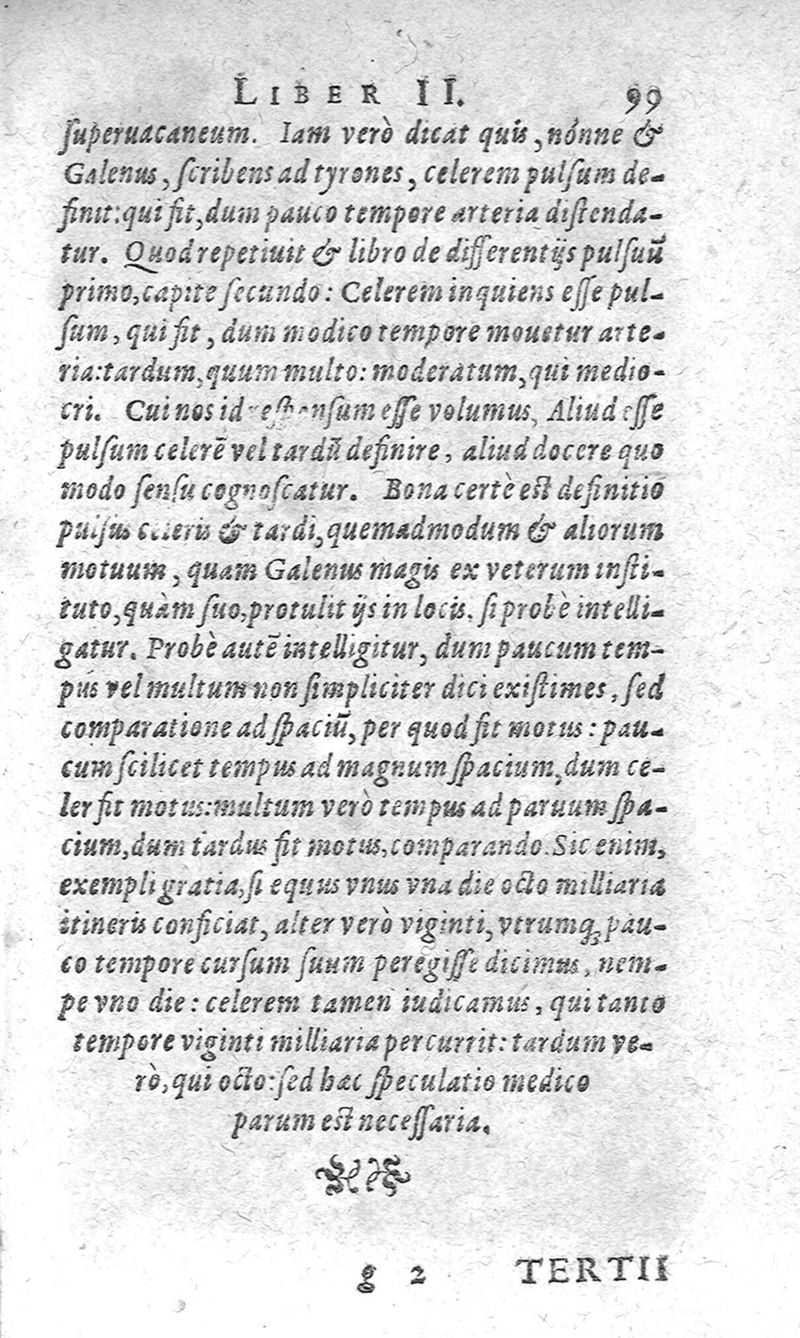 LIBER II. 99
ſuperuacaneum. Iam verò dicat quis, nónne &
Galenus, ſcribens ad tyrones, celerem pulſum de-
finit: qui fit, dum pauco tempore arteria diſtenda-
tur. Quod repetiuit & libro de differentijs pulſuũ
primo, capite ſecundo: Celerem inquiens eſſe pul-
ſum, qui fit, dum modico tempore mouetur arte-
ria: tardum, quum multo: moderatum, qui medio-
cri. Cui nos id reſponſum eſſe volumus, Aliud eſſe
pulſum celerẽ vel tardũ definire, aliud docere quo
modo ſenſu cognoſcatur. Bona certè eſt definitio
pulſus celeris & tardi, quemadmodum & aliorum
motuum, quam Galenus magis ex veterum inſti-
tuto, quàm ſuo, protulit ijs in locis, ſi probè intelli-
gatur. Probè autẽ intelligitur, dum paucum tem-
pus vel multum non ſimpliciter dici exiſtimes, ſed
comparatione ad ſpaciũ, per quod fit motus: pau-
cum ſcilicet tempus ad magnum ſpacium, dum ce-
ler fit motus: multum verò tempus ad paruum ſpa-
cium, dum tardus fit motus, comparando. Sic enim,
exempli gratia, ſi equus vnus vna die octo milliaria
itineris conficiat, alter verò viginti, vtrumq; pau-
co tempore curſum ſuum peregiſſe dicimus, nem-
pe vno die: celerem tamen iudicamus, qui tanto
tempore viginti milliaria percurrit: tardum ve-
rò, qui octo: ſed hæc ſpeculatio medico
parum eſt neceſſaria.
g 2 TERTII